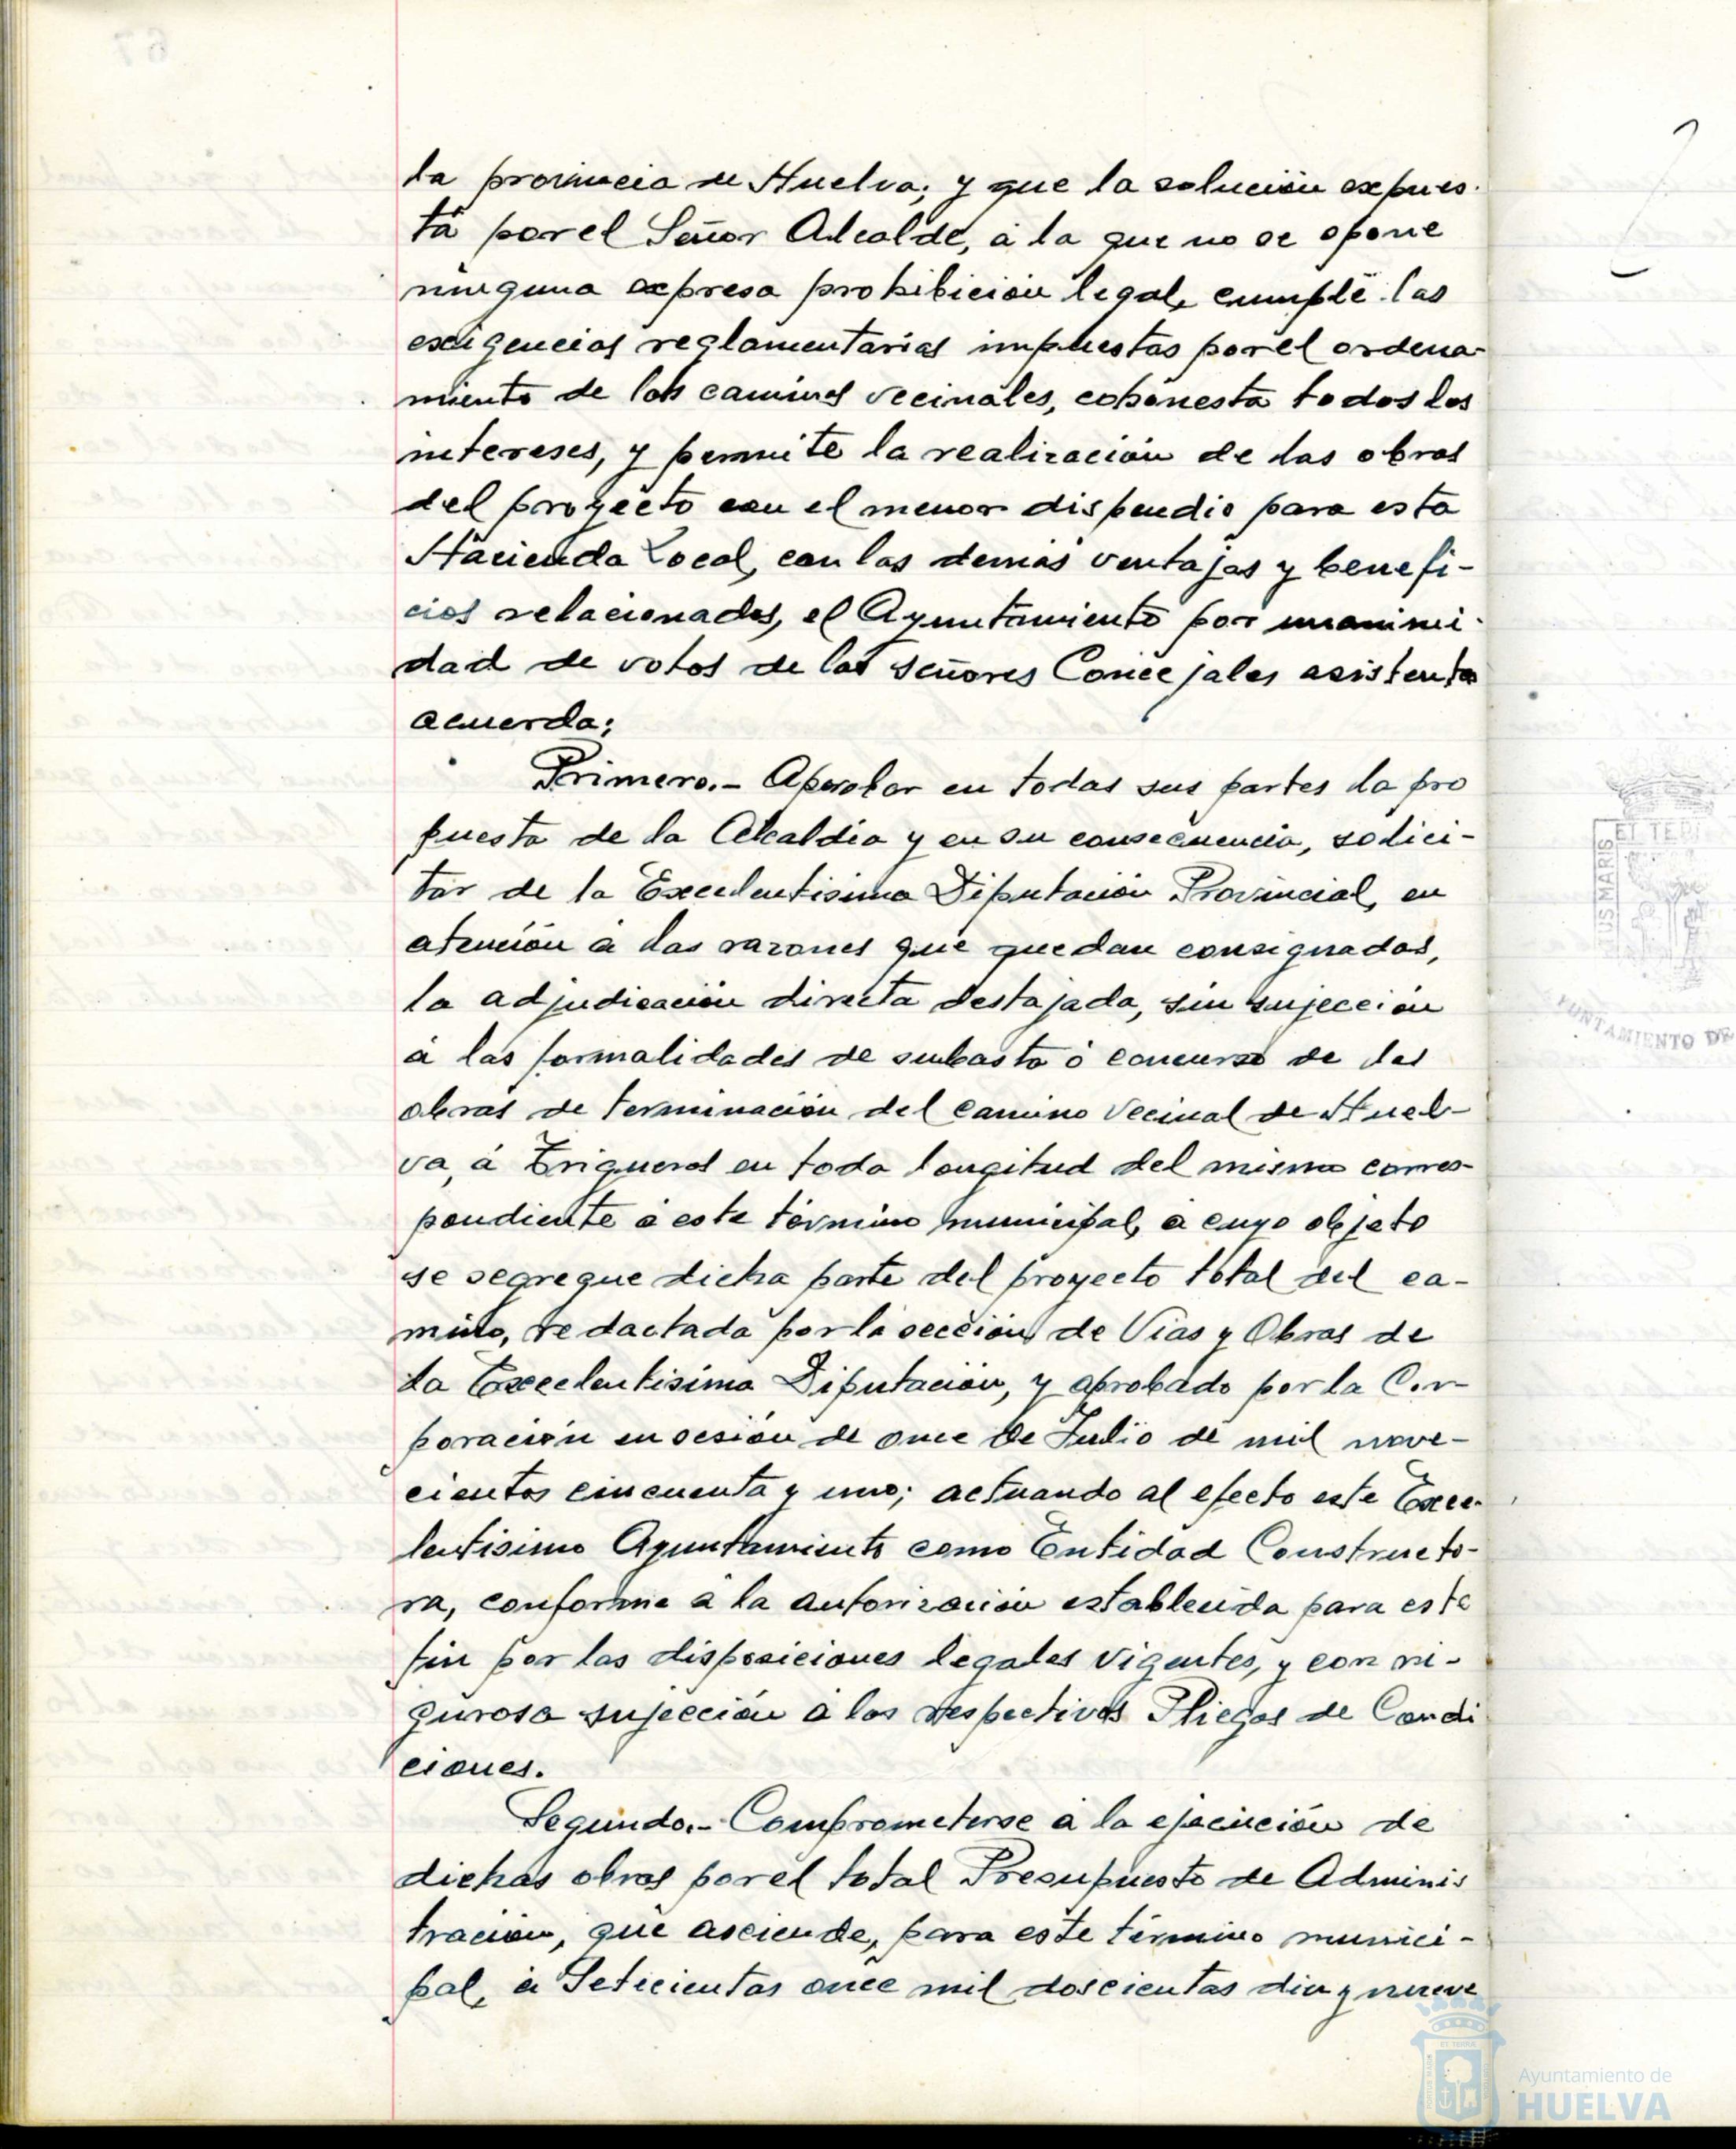 la provincia de Huelva; y que la solución expues-
ta por el Señor Alcalde, á la que no se opone
ninguna expresa prohibición legal, cumple las
exigencias reglamentarias impuestas por el ordena-
miento de los caminos vecinales, cohonesta todos los
intereses, y permite la realización de las obras
del proyecto con el menor dispendio para esta
Hacienda Local, con las demás ventajas y benefi-
cios relacionados, el Ayuntamiento por unanimi-
dad de votos de los señores Concejales asistentes
acuerda:
Primero.- Aprobar en todas sus partes la pro
puesta de la Alcaldia y en su consecuencia, solici-
tar de la Excelentisima Diputación Provincial, en
atención á las razones que quedan consignadas,
la adjudicación directa destajada, sin sujección
á las formalidades de subasta ó concurso de las
obras de terminación del camino vecinal de Huel-
va, á Trigueros en toda longitud del mismo corres-
pondiente á este término municipal, a cuyo objeto
se segregue dicha parte del proyecto total del ca-
mino, redactada por la sección de Vias y Obras de
la Excelentisima Diputación, y aprobado por la Cor-
poración en sesión de once de Julio de mil nove-
cientos cincuenta y uno; actuando al efecto este Exce-
lentisimo Ayuntamiento como Entidad Constructo-
ra, conforme á la autorización establecida para este
fin por las disposiciones legales vigentes, y con ri-
gurosa sujección á los respectivos Pliegos de Condi
ciones.
Segundo.- Comprometerse á la ejecución de
dichas obras por el total Presupuesto de Adminis
tración, que asciende, para este término munici-
pal, á Setecientas once mil doscientas diez y nueve
ET TERR
US MARIS
AYUNTAMIENTO DE
Ayuntamiento de
HUELVA